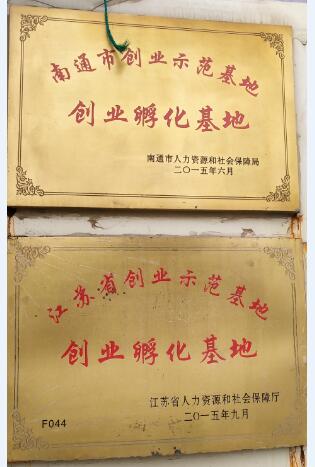 南通市创业示范基地
创业孵化基地
南通市人力资源和社会保障局
二〇一五年六月
江苏省创业示范基地
创业孵化基地
江苏省人力资源和社会保障厅
二〇一五年九月
F044